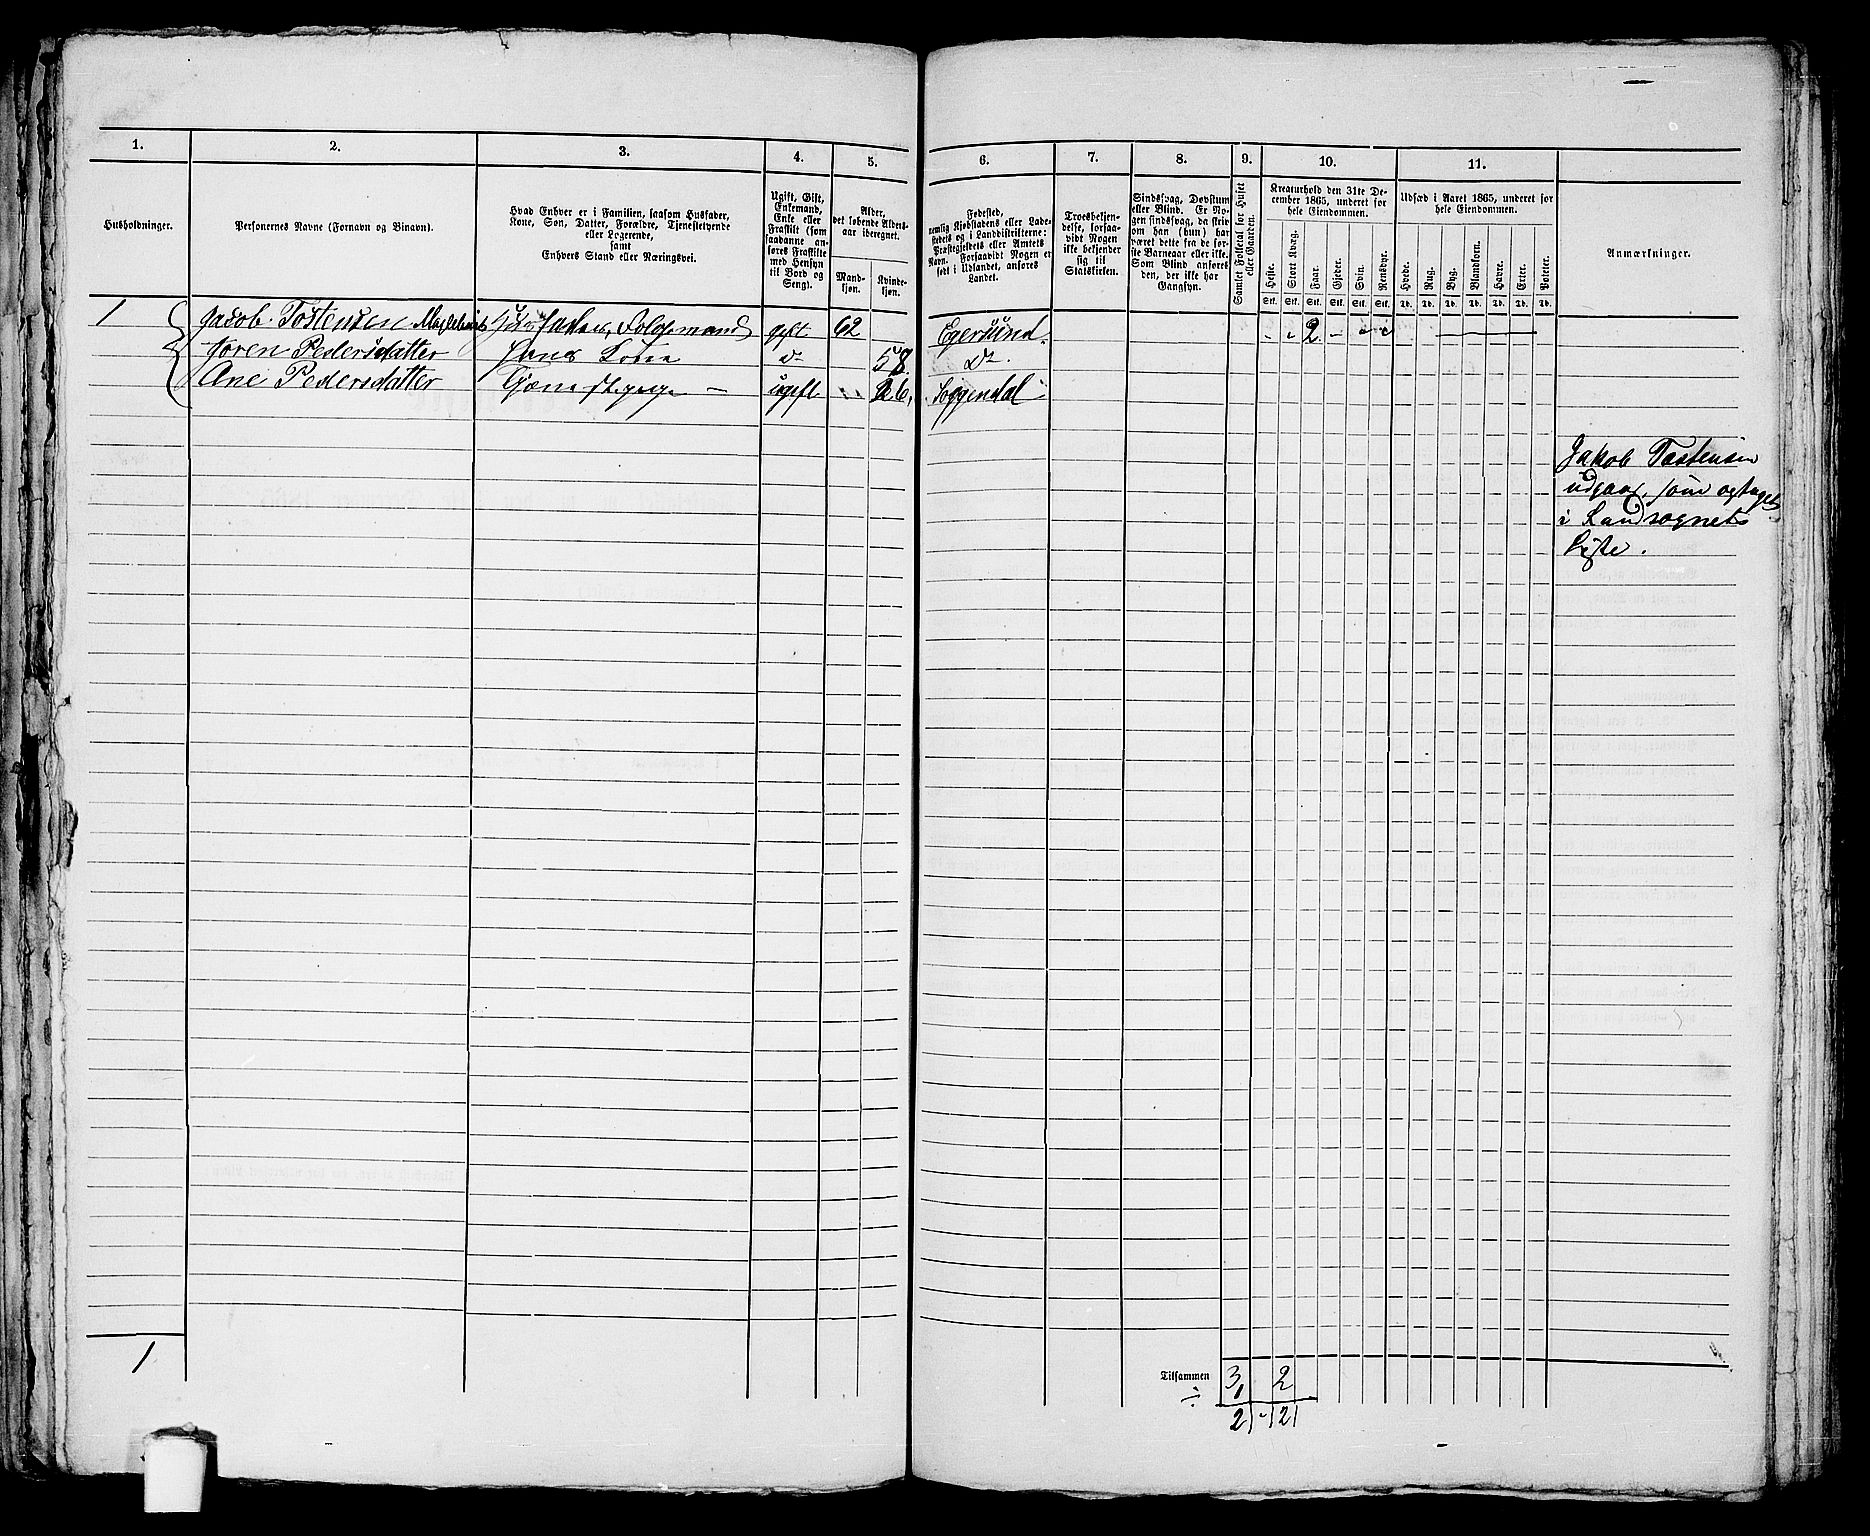 1.
2.
3.
4.
5.
Husholdninger.
Personernes Navne (Fornavn og Binavn).
Hvad Enhver er i Familien, saasom Husfader,
Kone, Søn, Datter, Forældre, Tjenestetyende
eller Logerende,
samt
Enhvers Stand eller Næringsvei.
Ugift, Gift,
Enkemand,
Enke eller
Fraskilt (som
saadanne an-
føres Fraskilte
med Hensyn
til Bord og
Seng).
Alder,
det løbende Alders-
aar iberegnet.
Mand-
kjøn.
Kvinde-
kjøn.
1 Jacob Tostensen Husfader, gift 62
Pedersdatter Hans Kone do 58.
Ane Pedersdatter ugift 26.
1
6.
7.
8.
9.
10.
11.
Fødested,
nemlig Kjøbstadens eller Lade-
stedets og i Landdistrikterne:
Præstegjeldets eller Amtets
Navn. Forsaavidt Nogen er
født i Udlandet, anføres
Landet.
Troesbekjen-
delse, forsaa-
vidt Nogen
ikke bekjender
sig til
Statskirken.
Sindssvag, Døvstum
eller Blind. Er No-
gen sindssvag, da skriv
om han (hun) har
været dette fra de før-
ste Barneaar eller ikke.
Som Blind anføres
den, der ikke har
Gangsyn.
Samlet Folketal for Huset
eller Gaarden.
Kreaturhold den 31te De-
cember 1865, underet for
hele Eiendommen.
Heste.
Stort Kvæg.
Faar.
Gjeder.
Svin.
Rensdyr.
Stk. Stk. Stk. Stk. Stk. Stk.
Udsæd i Aaret 1865, underet for
hele Eiendommen.
Hvede.
Rug.
Byg.
Blandkorn.
Havre.
Erter.
Poteter.
Td. Td. Td. Td. Td. Td. Td.
Anmærkninger.
Egersund. 2
do.
Soggendal
Jakob Tostensen
udgaar, som optaget
i Landsognets
Liste.
Tilsammen 3 2
÷ 1
2 2